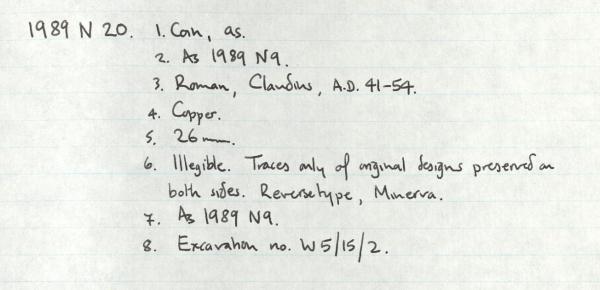 1989 N 20. 1. Coin, as.
2. As 1989 N9.
3. Roman, Claudius, A.D. 41-54.
4. Copper.
5. 26mm.
6. Illegible. Traces only of original designs preserved on
both sides. Reverse type, Minerva.
7. As 1989 N9.
8. Excavation no. W5/15/2.